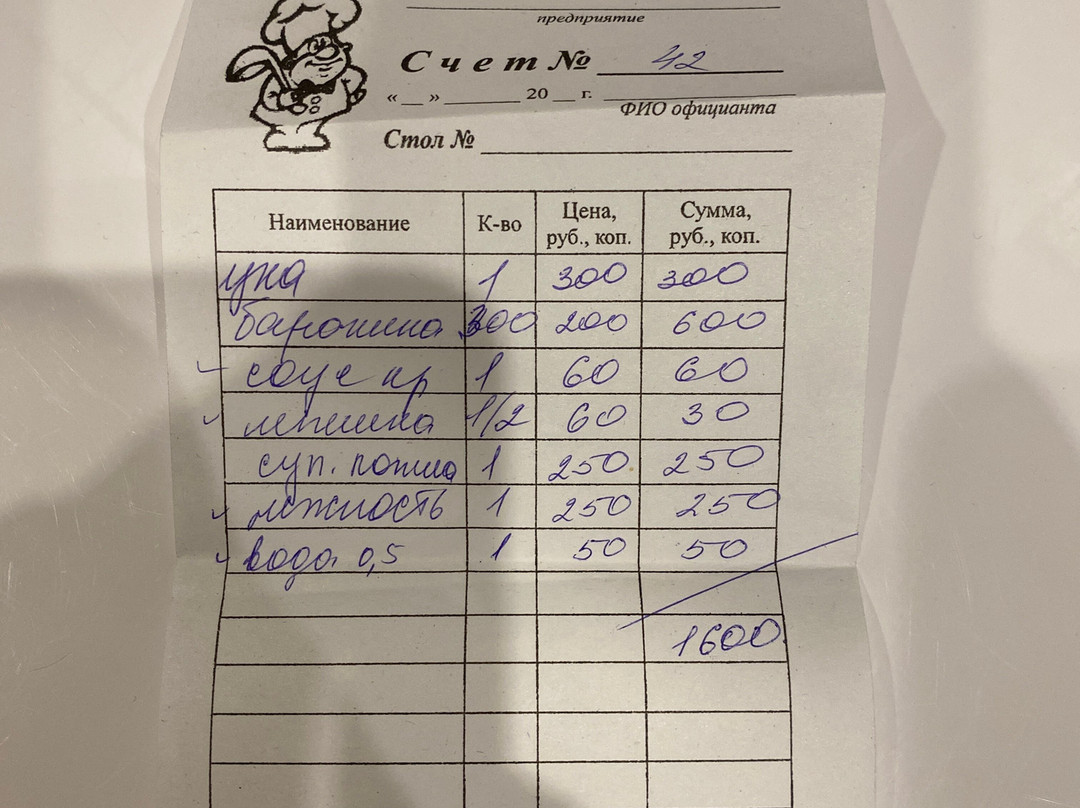 предприятие
Счет № 42
« __ » ______ 20 __ г.
ФИО официанта
Стол №
Наименование К-во Цена, руб., коп. Сумма, руб., коп.
уха 1 300 300
баранина 300 200 600
соус кр 1 60 60
лепешка 1/2 60 30
суп. 1 250 250
нежность 1 250 250
вода 0,5 1 50 50
1600